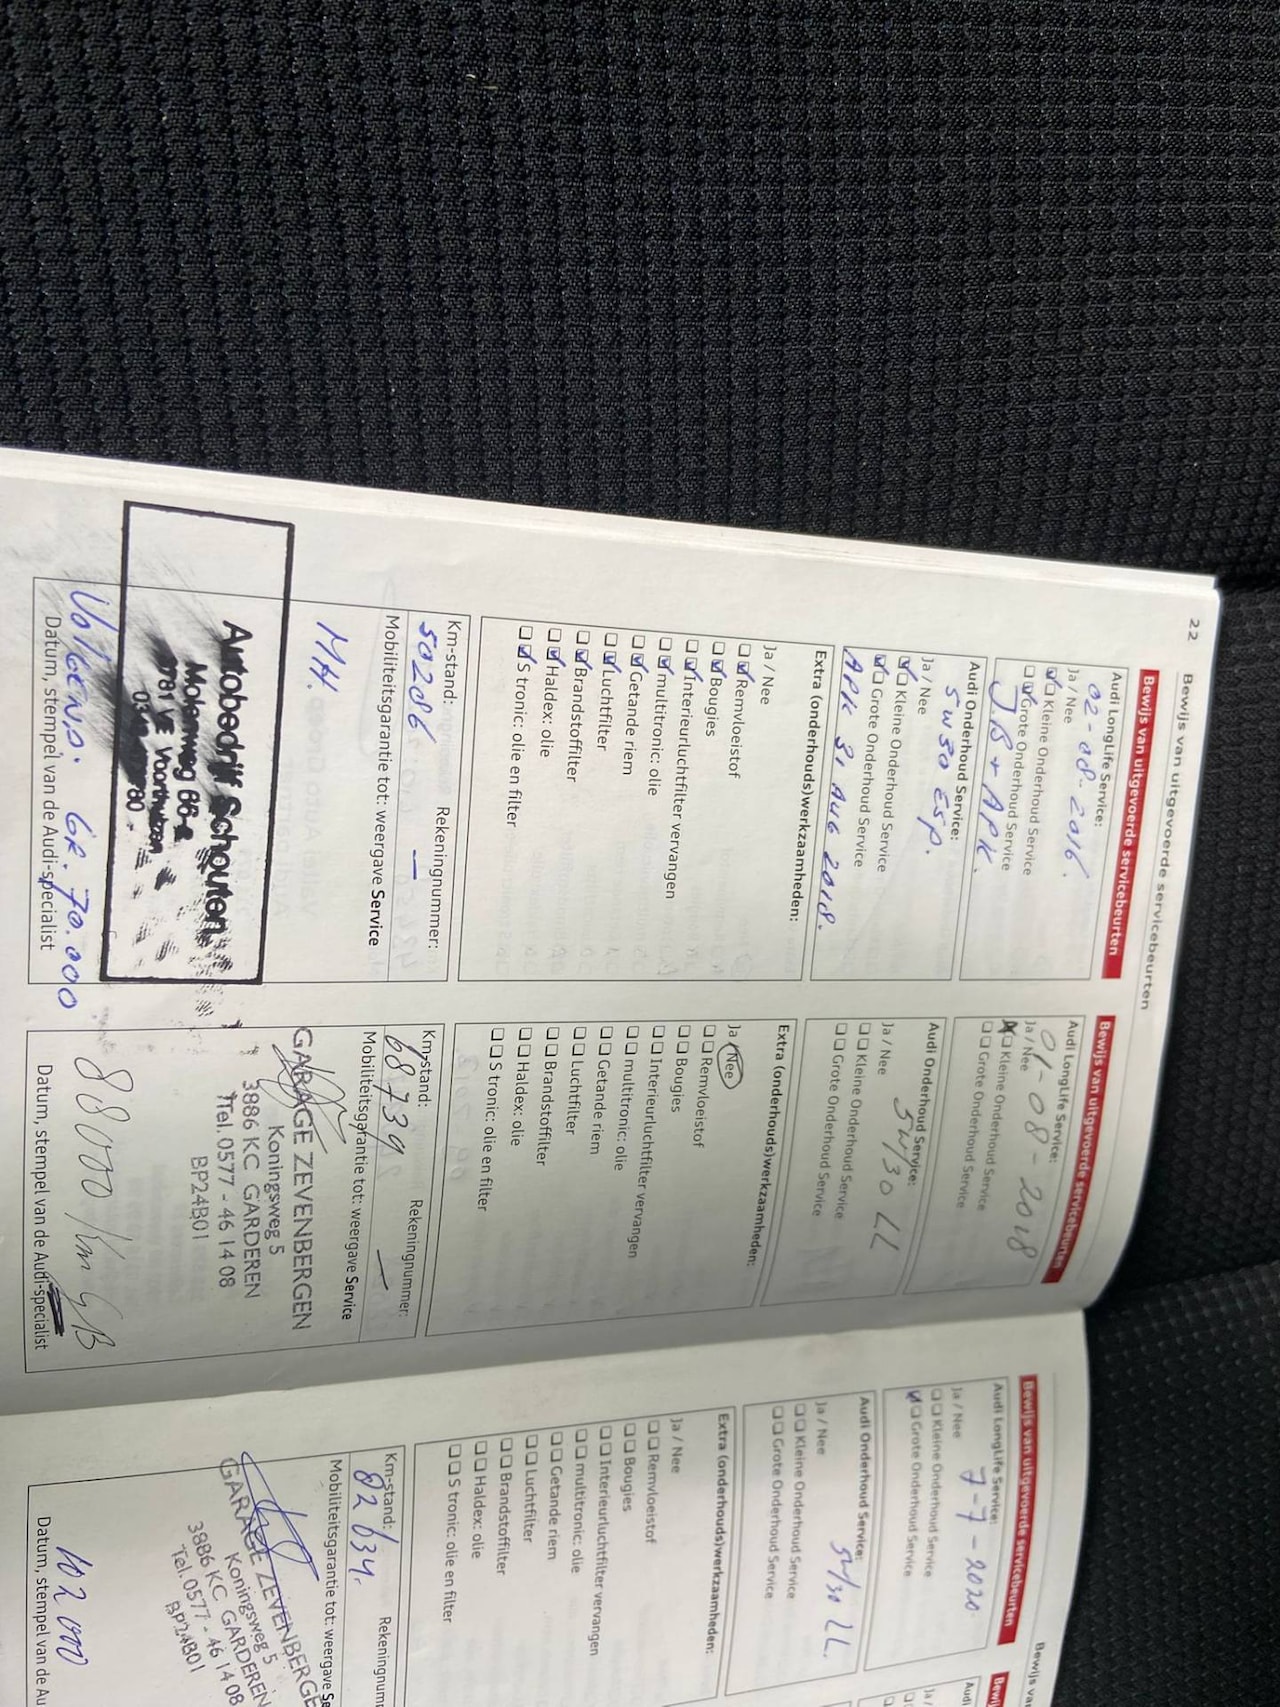 22
Bewijs van uitgevoerde servicebeurten
Bewijs van uitgevoerde servicebeurten
Audi LongLife Service:
02-08-2016.
Ja / Nee
Kleine Onderhoud Service
Grote Onderhoud Service
JB + APK.
Audi Onderhoud Service:
5w30 ESP.
Ja / Nee
Kleine Onderhoud Service
Grote Onderhoud Service
APK 31 AUG 2018.
Extra (onderhouds)werkzaamheden:
Ja / Nee
Remvloeistof
Bougies
Interieurluchtfilter vervangen
multitronic: olie
Getande riem
Luchtfilter
Brandstoffilter
Haldex: olie
S tronic: olie en filter
Km-stand: Rekeningnummer:
50286 —
Mobiliteitsgarantie tot: weergave Service
MH.
Autobedrijf Schouten
Molenweg 66-a
3781 VE Voorthuizen
Datum, stempel van de Audi-specialist
Volgens. GR. 70.000
Bewijs van uitgevoerde servicebeurten
Audi LongLife Service:
01-08-2018
Ja / Nee
Kleine Onderhoud Service
Grote Onderhoud Service
Audi Onderhoud Service:
5W30 LL
Ja / Nee
Kleine Onderhoud Service
Grote Onderhoud Service
Extra (onderhouds)werkzaamheden:
Ja / Nee
Remvloeistof
Bougies
Interieurluchtfilter vervangen
multitronic: olie
Getande riem
Luchtfilter
Brandstoffilter
Haldex: olie
S tronic: olie en filter
Km-stand: Rekeningnummer:
68739 —
Mobiliteitsgarantie tot: weergave Service
GARAGE ZEVENBERGEN
Koningsweg 5
3886 KC GARDEREN
Tel. 0577 - 46 14 08
BP24B01
88000 Km GB
Datum, stempel van de Audi-specialist
Bewijs van
Bewijs van uitgevoerde servicebeurten
Audi LongLife Service:
7-7-2020
Ja / Nee
Kleine Onderhoud Service
Grote Onderhoud Service
Audi Onderhoud Service:
5W30 LL.
Ja / Nee
Kleine Onderhoud Service
Grote Onderhoud Service
Extra (onderhouds)werkzaamheden:
Ja / Nee
Remvloeistof
Bougies
Interieurluchtfilter vervangen
multitronic: olie
Getande riem
Luchtfilter
Brandstoffilter
Haldex: olie
S tronic: olie en filter
Km-stand: Rekeningnum
82634.
Mobiliteitsgarantie tot: weergave Se
GARAGE ZEVENBERGE
Koningsweg 5
3886 KC GARDEREN
Tel. 0577 - 46 14 08
BP24B01
102 000
Datum, stempel van de Au
Bewij
Audi
Ja /